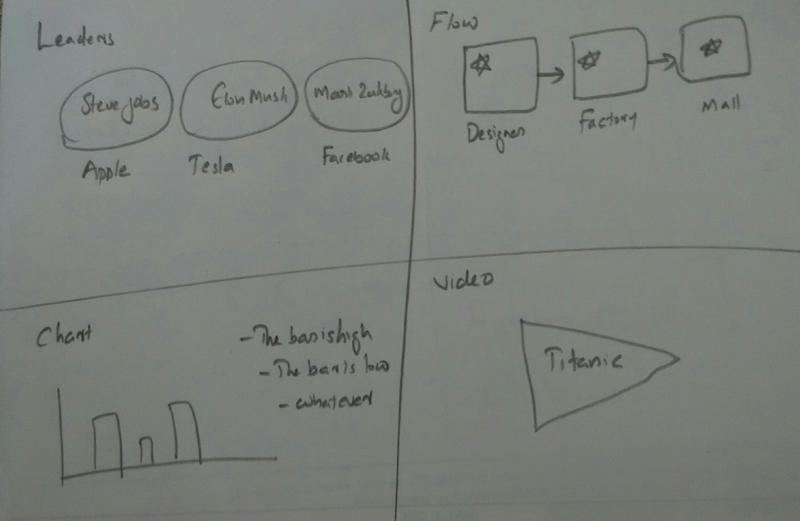 Leaders
Steve Jobs
Elon Mush
Apple
Tesla
Facebook
Flow
Designer
Factory
Mall
Chart
- The bar is high
- The bar is low
- Whatever
Video
Titanic